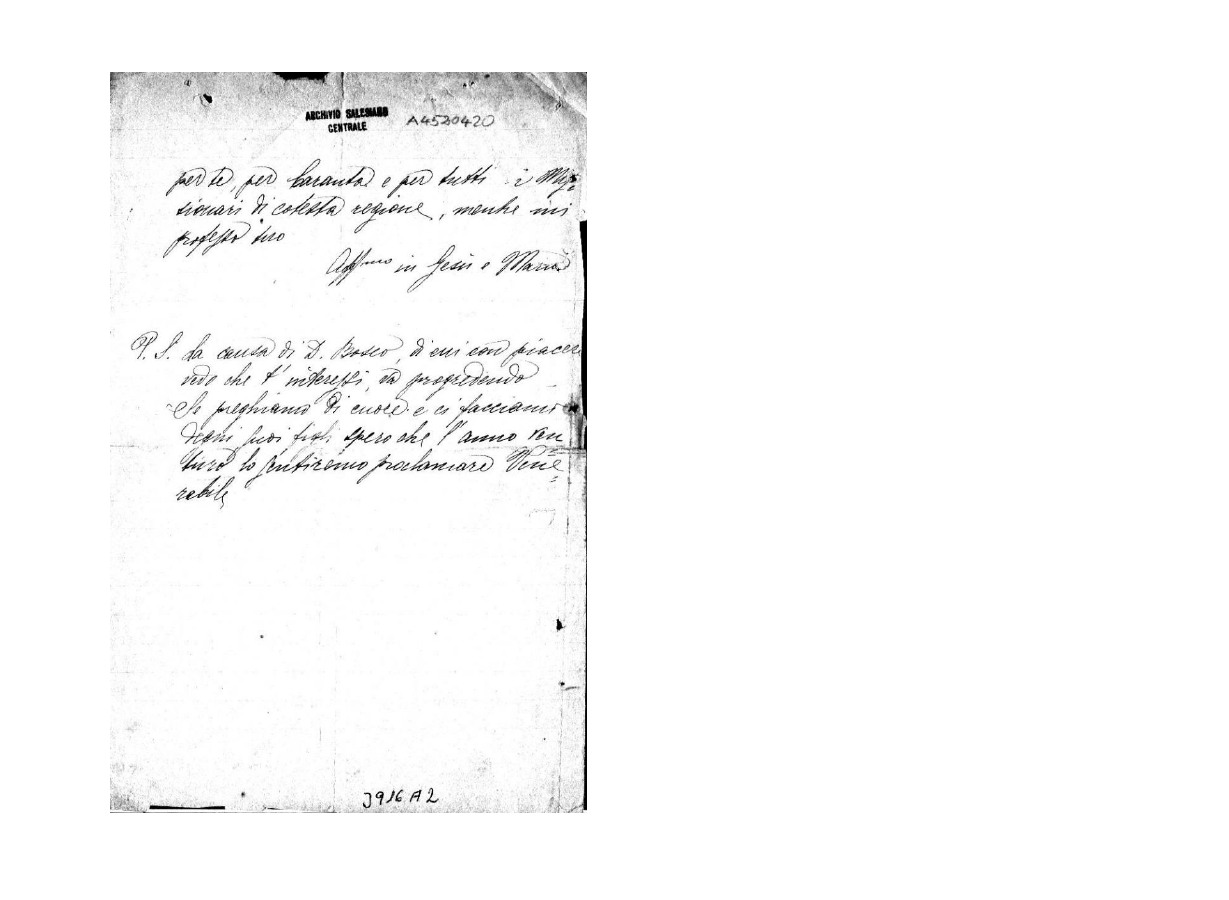 ARCHIVIO SALESIANO
CENTRALE
A4520420
per te, per Caranta e per tutti i Mis=
sionari di cotesta regione, mentre mi
professo tuo
Aff.mo in Gesù e Maria
P. S. La causa di D. Bosco, di cui con piacere
vedo che t'interessi, va progredendo
Se preghiamo di cuore e ci facciamo
degni suoi figli spero che l'anno ven=
turo lo sentiremo proclamare Vene=
rabile
3916 A2